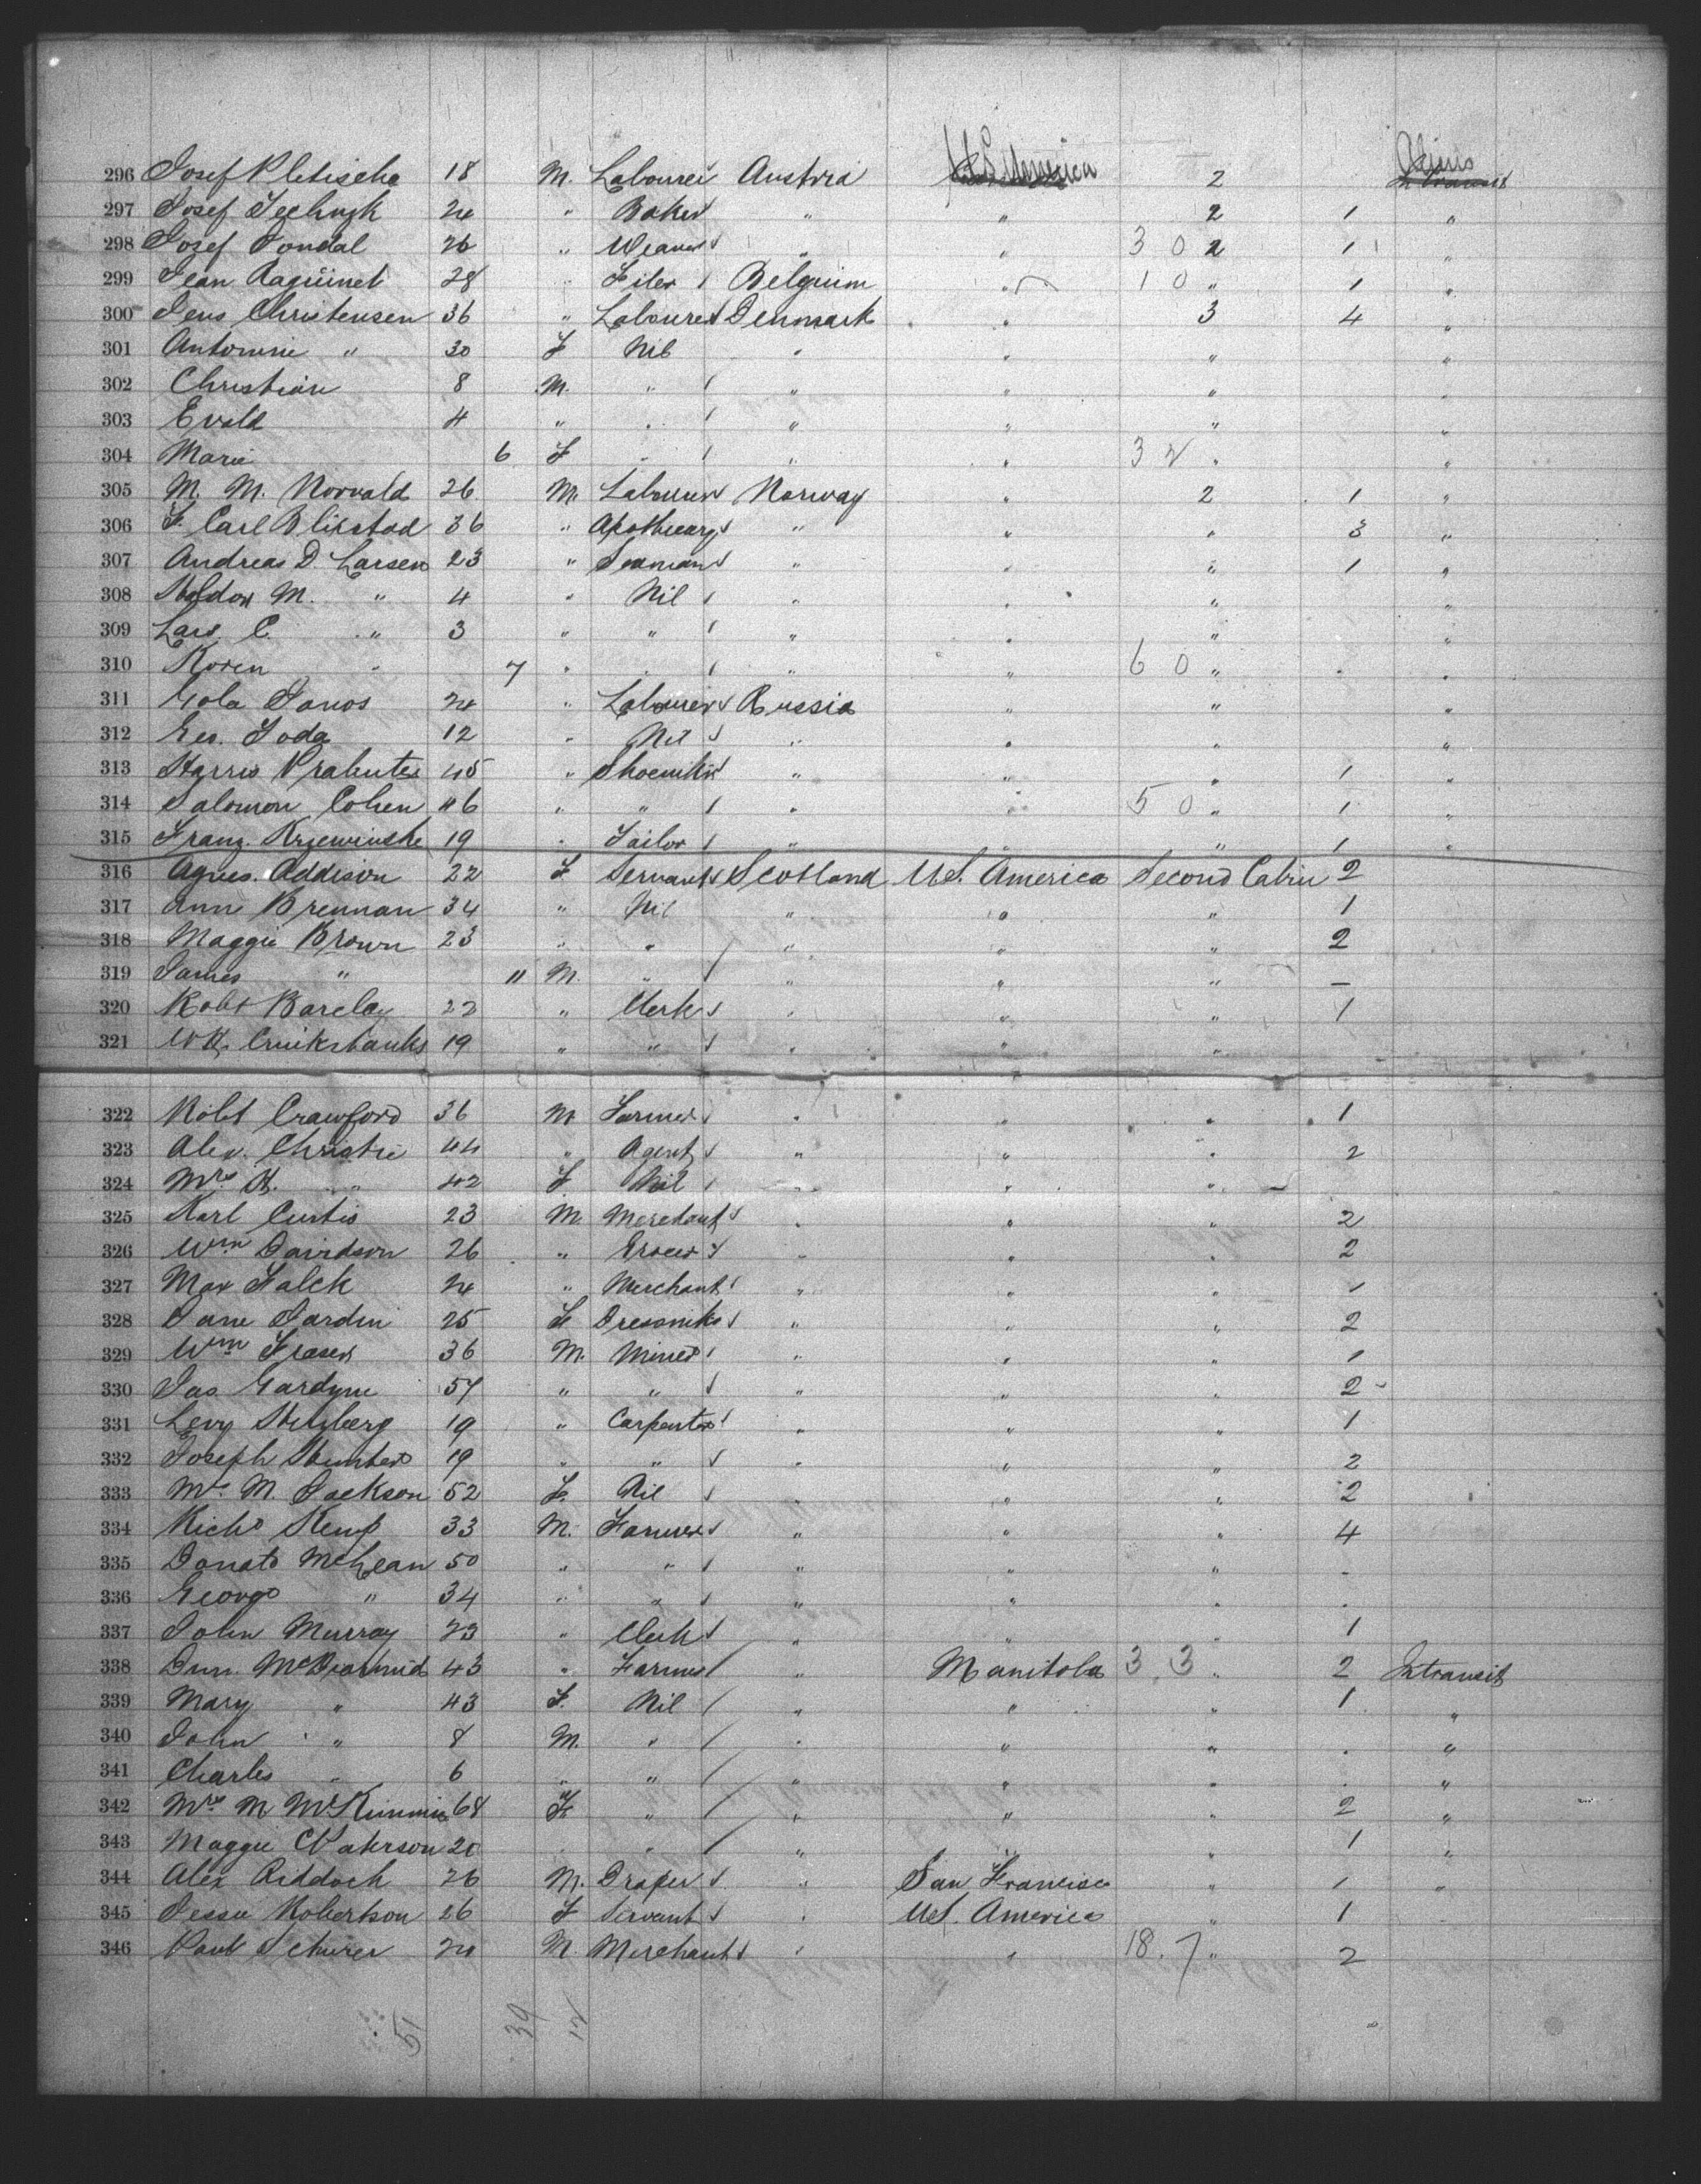 U.S. America Aliens
296 Josef Pletische 18 M. Labourer Austria 2 In transit
297 Josef 24 " Baker " " 2 1 "
298 Josef Dondal 26 " Weaver " " 3 0 2 1 "
299 Jean Raguinet 28 " Filer Belgium " 1 0 " 1 "
300 Jens Christensen 36 " Labourer Denmark " 3 4 "
301 Antomine " 30 F Nil " " " "
302 Christian 8 M. " " " " "
303 Evald 4 " " " " " "
304 Marie 6 F " " " 3 2 " "
305 M. M. Norvald 26 M. Labourer Norway " 2 1 "
306 F. Carl Blixstad 36 " Apothecary " " " 3 "
307 Andreas D. Larsen 23 " Seaman " " " 1 "
308 Haldor M. " 4 " Nil " " " "
309 Lars C. " 3 " " " " " "
310 Koren " 7 " " " " 6 0 " " "
311 Gola Janos 24 " Labourer Russia " " "
312 Geo. Soda 12 " Nil " " " "
313 Harris 45 " Shoemkr " " " 1 "
314 Salomon Cohen 46 " " " " 5 0 " 1 "
315 Franz. Krzewinske 19 " Tailor " " " 1 "
316 Agnes. Addison 22 F Servant Scotland U.S. America Second Cabin 2
317 Ann Brennan 34 " Nil " " " 1
318 Maggie Brown 23 " " " " " 2
319 James " 11 M. " " " " –
320 Robt Barclay 22 " Clerk " " " 1
321 Wm. Cruikshanks 19 " " " " " "
322 Robt Crawford 36 M Farmer " " " 1
323 Alex. Christie 44 " Agent " " " 2
324 Mrs H. " 42 F Nil " " " –
325 Karl Curtis 23 M. Merchant " " " 2
326 Wm Davidson 26 " Grocer " " " 2
327 Max Falck 24 " Merchant " " " 1
328 Jane Jardin 25 F Dressmkr " " " 2
329 Wm Fraser 36 M. Miner " " " 1
330 Jas Gardyne 57 " " " " " 2
331 Levy 19 " Carpenter " " " 1
332 Joseph Hunter 19 " " " " " 2
333 Mrs M. Jackson 52 F. Nil " " " 2
334 Richd Kemp 33 M. Farmer " " " 4
335 Donald McLean 50 " " " " " –
336 George " 34 " " " " " "
337 John Murray 23 " Clerk " " " 1
338 Dun. McDiarmid 43 " Farmer " Manitoba 3 3 " 2 In transit
339 Mary " 43 F. Nil " " " 1 "
340 John " 8 M. " " " " " "
341 Charles " 6 " " " " " " "
342 Mrs M McKimmie 68 F " " " " 2 "
343 Maggie C Paterson 20 " " " " 1 "
344 Alex Riddoch 26 M. Draper " San Francisco " 1 "
345 Jessie Robertson 26 F Servant " U.S. America " 1
346 Paul Schurer 24 M. Merchant " " 18.7 " 2
51 39 12